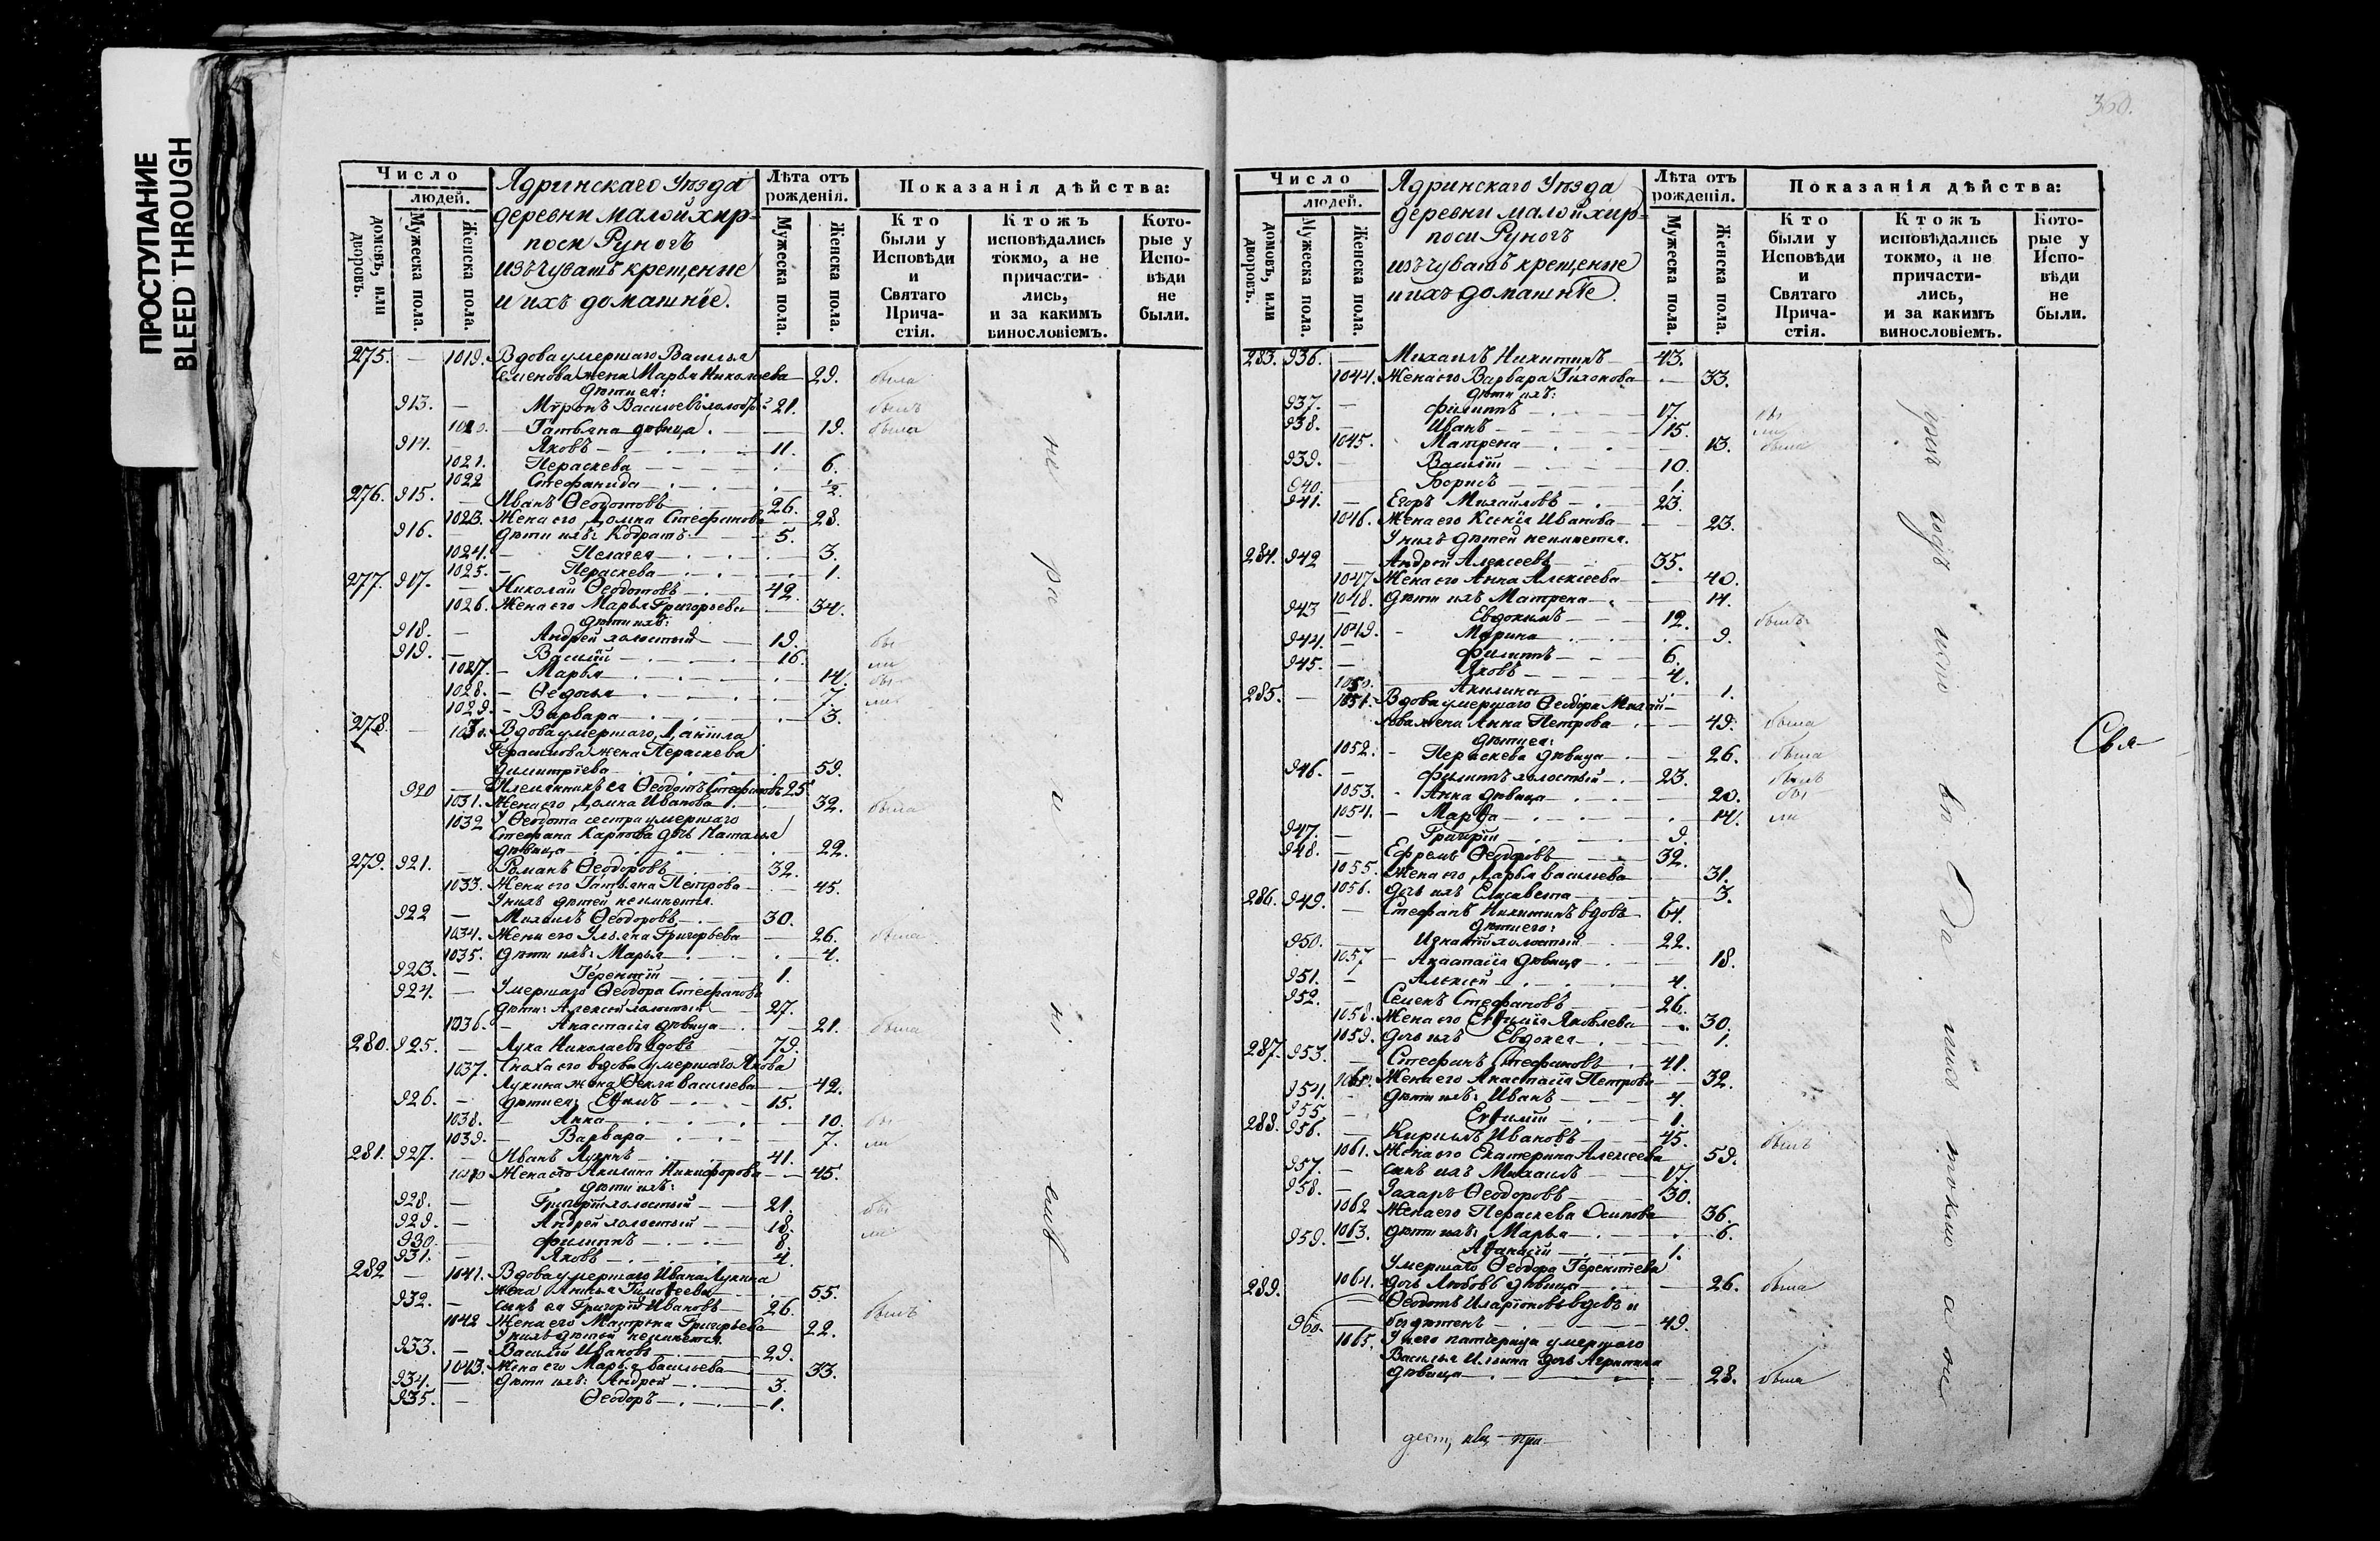 ПРОСТУПАНИЕ
BLEED THROUGH
Число
людей.
домовъ, или дворовъ.
Мужеска пола.
Женска пола.
Ядринскаго Уѣзда
деревни малой хир-
поси Руногъ
изъ чувашъ крещеные
и ихъ домашнїе.
Лѣта отъ рожденія.
Мужеска пола.
Женска пола.
Показанія дѣйства:
Кто были у Исповѣди и Святаго Прича-стія.
Ктожъ исповѣдались токмо, а не причасти-лись, и за какимъ винословіемъ.
Кото-рые у Испо-вѣди не были.
275. — 1019. Вдова умершаго Василья
Семенова жена Марья Николаева 29. была
дѣти ея:
913. — Мѵронъ Васильевъ холос 21. былъ
1020. Татьяна дѣвица. 19. была
914. — Яковъ 11.
1021. Параскева 6.
1022 Стефанида ½.
276. 915. — Иванъ Ѳеодотовъ 26.
1023. Жена его Домна Стефанова 28.
916. — дѣти ихъ: Кодратъ 5.
1024. — Пелагея 3.
1025. — Параскева 1.
277. 917. — Николай Ѳеодотовъ 42.
1026. Жена его Марья Григорьева 34.
дѣти ихъ:
918. — Андрей холостый 19. бы
919. — Василїй 16. ли
1027. — Марья 14. бы
1028. — Ѳедосья 7. ли
1029. — Варвара 3.
278. — 1030. Вдова умершаго Данїила
Герасимова жена Параскева
Димитрїева 59.
920 — Племянникъ ея Ѳеодотъ Стефановъ 25
1031. Жена его Домна Иванова 32. была
1032 У Ѳеодота сестра умершаго
Стефана Карпова дочь Наталья
дѣвица 22.
279. 921. — Романъ Ѳеодоровъ 32.
1033. Жена его Татьяна Петрова 45.
У нихъ дѣтей неимѣется.
922 — Михаилъ Ѳеодоровъ 30.
1034. Жена его Ульяна Григорьева 26. была
1035. дѣти ихъ: Марья 4.
923. — Терентїй 1.
924. — Умершаго Ѳеодора Стефанова
дѣти: Алексей холостый 27.
1036. — Анастасїя дѣвица 21. была
280. 925. — Лука Николаевъ вдовъ 79.
1037. Сноха его вдова умершаго Якова
Лукина жена Ѳекла Васильева 42.
926. — дѣти ея: Еѳимъ 15.
1038. — Анна 10. бы
1039. — Варвара 7. ли
281. 927. — Иванъ Лукинъ 41.
1040 Жена его Акилина Никифорова 45.
дѣти ихъ:
928. — Григорїй холостый 21. бы
929. — Андрей холостый 18. ли
930. — Филиппъ 8.
931. — Яковъ 4.
282 — 1041. Вдова умершаго Ивана Лукина
жена Анисья Тимоѳеева 55.
932. — сынъ ея Григорїй Ивановъ 26. былъ
1042 Жена его Матрена Григорьева 22.
У нихъ дѣтей неимѣется.
933. — Василїй Ивановъ 29.
1043. Жена его Марья Васильева 33.
934. — дѣти ихъ: Андрей 3.
935. — Ѳеодоръ 1.
360.
Число
людей.
домовъ, или дворовъ.
Мужеска пола.
Женска пола.
Ядринскаго Уѣзда
деревни малой хир-
поси Руногъ
изъ чувашъ крещеные
и ихъ домашнїе.
Лѣта отъ рожденія.
Мужеска пола.
Женска пола.
Показанія дѣйства:
Кто были у Исповѣди и Святаго Прича-стія.
Ктожъ исповѣдались токмо, а не причасти-лись, и за какимъ винословіемъ.
Кото-рые у Испо-вѣди не были.
283. 936. — Михаилъ Никитинъ 43.
1044. Жена его Варвара Тихонова 33.
дѣти ихъ:
937. — Филиппъ 17. бы
938. — Иванъ 15. ли
1045. Матрена 13. была
939. — Василїй 10.
940. — Борисъ 1.
941. — Егоръ Михайловъ 23.
1046. Жена его Ксенїя Иванова 23.
У нихъ дѣтей неимѣется.
284. 942 — Андрей Алексеевъ 35.
1047 Жена его Анна Алексеева 40.
1048. дѣти ихъ Матрена 14.
943 — Евдокимъ 12. былъ
1049. — Марина 9.
944. — Филиппъ 6.
945. — Яковъ 4.
1050. Акилина 1.
285. — 1051. Вдова умершаго Ѳеодора Михай-
лова жена Анна Петрова 49. была
дѣти ея:
1052. — Параскева дѣвица 26. была
946. — Филиппъ холостый 23. былъ
1053. — Анна дѣвица 20. бы
1054. — Марѳа 14. ли
947. — Григорїй 9.
948. — Ефремъ Ѳеодоровъ 32.
1055. Жена его Марья Васильева 31.
1056. дочь ихъ Елисавета 3.
286. 949. — Стефанъ Никитинъ вдовъ 64.
дѣти его:
950. — Игнатїй холостый 22.
1057 — Анастасїя дѣвица 18.
951. — Алексей 4.
952. — Семенъ Стефановъ 26.
1058. Жена его Еѵѳимїя Яковлева 30.
1059. дочь ихъ Евдокея 1.
287. 953. — Стефанъ Стефановъ 41.
1060. Жена его Анастасїя Петрова 32.
954. — дѣти ихъ: Иванъ 4.
955 — Еѵѳимїй 1.
288. 956. — Кириллъ Ивановъ 45. былъ
1061. Жена его Екатерина Алексеева 59.
957. — сынъ ихъ Михаилъ 17.
958. — Захаръ Ѳеодоровъ 30.
1062 Жена его Параскева Осипова 36.
1063. дѣти ихъ: Марья 6.
959. — Аѳанасїй 1.
Умершаго Ѳеодора Терентїева
289. 1064. дочь Любовь дѣвица 26. была
Ѳеодотъ Иларїоновъ вдовъ и
960. — бездѣтенъ 49.
1065. У него падчерица умершаго
Василья Ильина дочь Агрипина
дѣвица 28. была
Свя